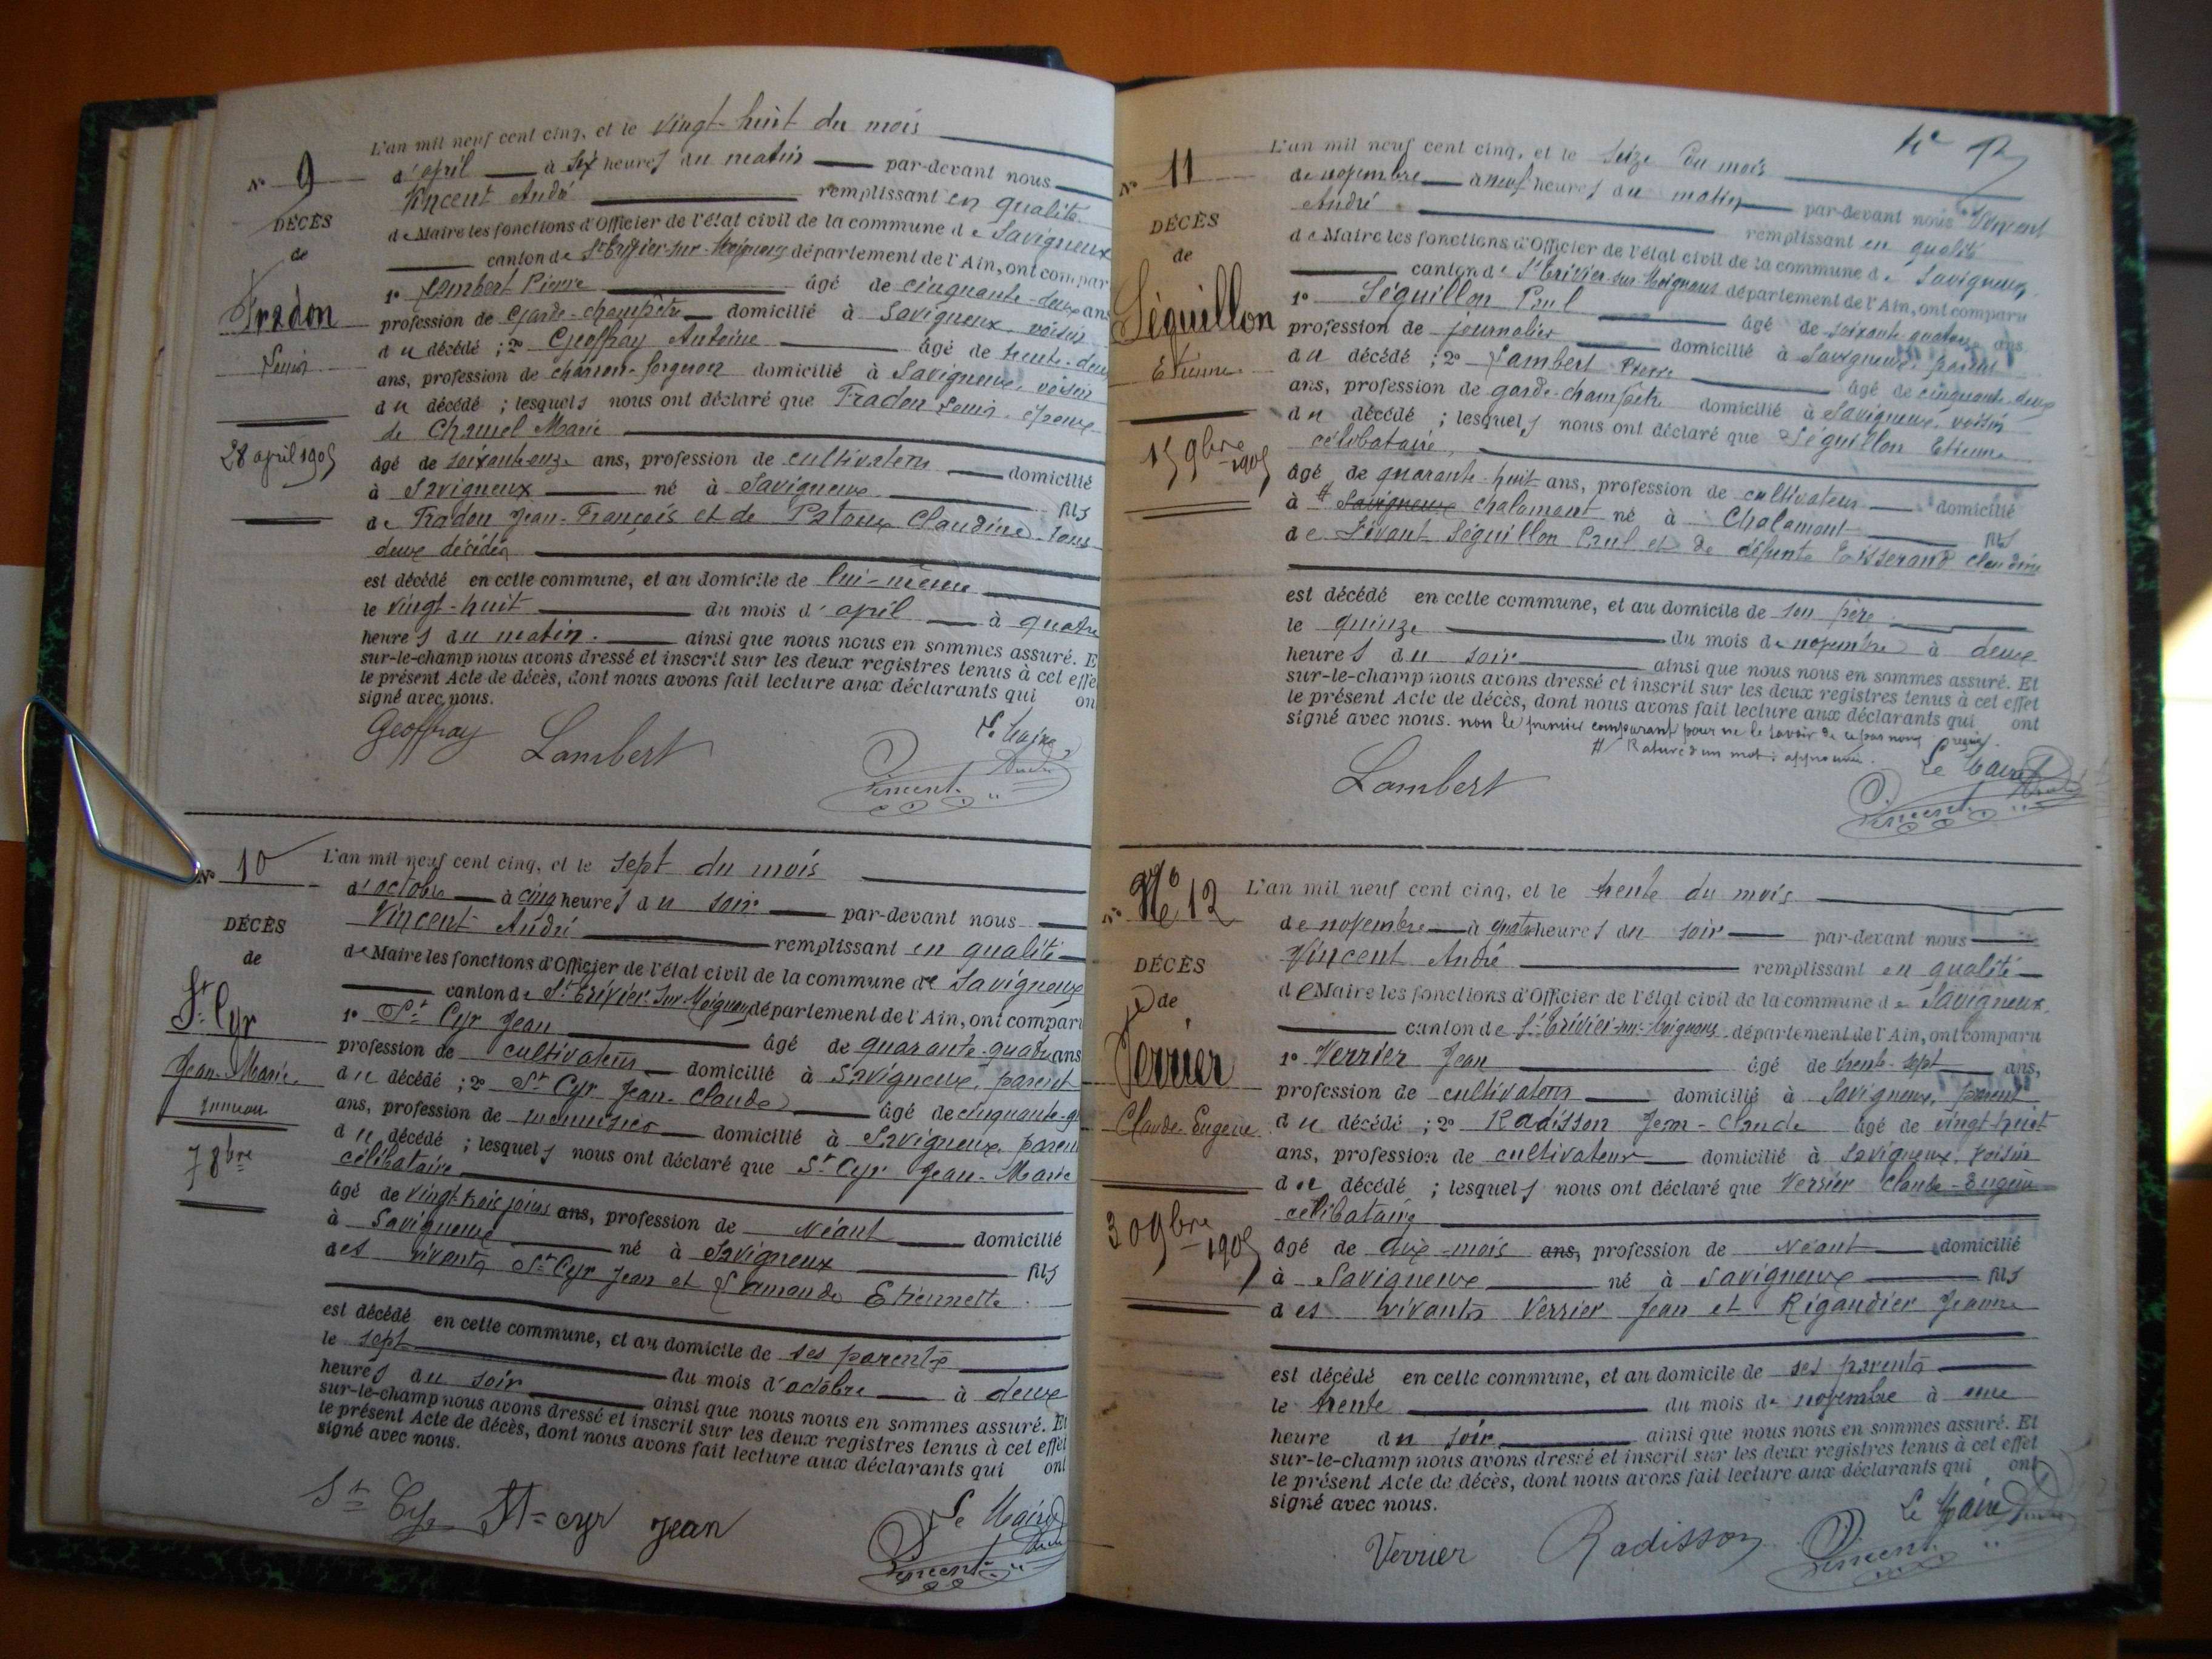 N° 9
DÉCÈS
de
Fradon
Louis
28 avril 1905
L'an mil neuf cent cinq, et le vingt-huit du mois
d'avril à six heures du matin par-devant nous
Vincent André remplissant en qualité
de Maire les fonctions d'Officier de l'état civil de la commune de Savigneux
canton de St Trivier-sur-Moignans département de l'Ain, ont compar
1° Lambert Pierre âgé de cinquante-deux ans
profession de Garde-champêtre domicilié à Savigneux voisin
du décédé ; 2° Geoffray Antoine âgé de trente-deux
ans, profession de charron-forgeron domicilié à Savigneux, voisin
du décédé ; lesquels nous ont déclaré que Fradon Louis, époux
de Chanel Marie
âgé de soixante onze ans, profession de cultivateur domicilié
à Savigneux né à Savigneux fils
de Fradon Jean-François et de Patoux Claudine tous
deux décédés
est décédé en cette commune, et au domicile de lui-même
le vingt-huit du mois d'avril à quatre
heures du matin. ainsi que nous nous en sommes assuré. E
sur-le-champ nous avons dressé et inscrit sur les deux registres tenus à cet effe
le présent Acte de décès, dont nous avons fait lecture aux déclarants qui on
signé avec nous.
Geoffray Lambert Le Maire
Vincent André
N° 10
DÉCÈS
de
St Cyr
Jean-Marie
jumeau
7 8bre
L'an mil neuf cent cinq, et le sept du mois
d'octobre à cinq heures du soir par-devant nous
Vincent André remplissant en qualité
de Maire les fonctions d'Officier de l'état civil de la commune de Savigneux
canton de St Trivier sur Moignans département de l'Ain, ont compar
1° St Cyr Jean âgé de quarante-quatre ans
profession de cultivateur domicilié à Savigneux, parent
du décédé ; 2° St Cyr Jean-Claude âgé de cinquante-
ans, profession de menuisier domicilié à Savigneux, paren
du décédé ; lesquels nous ont déclaré que St Cyr Jean-Marie
célibataire
âgé de vingt trois jours ans, profession de Néant domicilié
à Savigneux né à Savigneux fils
des vivants St Cyr Jean et Etiennette
est décédé en cette commune, et au domicile de ses parents
le sept du mois d'octobre à deux
heures du soir ainsi que nous nous en sommes assuré. Et
sur-le-champ nous avons dressé et inscrit sur les deux registres tenus à cet effet
le présent Acte de décès, dont nous avons fait lecture aux déclarants qui ont
signé avec nous.
St Cyr St cyr Jean Le Maire
Vincent André
N° 11
DÉCÈS
de
Séguillon
Etienne
15 9bre 1905
L'an mil neuf cent cinq, et le seize du mois
de novembre à neuf heures du matin par-devant nous Vincent
André remplissant en qualité
de Maire les fonctions d'Officier de l'état civil de la commune de Savigneux
canton de St Trivier-sur-Moignans département de l'Ain, ont comparu
1° Séguillon Paul âgé de soixante-quatorze ans
profession de journalier domicilié à Savigneux, parent
du décédé ; 2° Lambert Pierre âgé de cinquante-deux
ans, profession de garde-champêtre domicilié à Savigneux, voisin
du décédé ; lesquels nous ont déclaré que Séguillon Etienne
célibataire,
âgé de quarante-huit ans, profession de cultivateur domicilié
à # Savigneux Chalamont né à Chalamont fils
de vivant Séguillon Paul et de défunte Tisserand Claudine
est décédé en cette commune, et au domicile de son père
le quinze du mois de novembre à deux
heures du soir ainsi que nous nous en sommes assuré. Et
sur-le-champ nous avons dressé et inscrit sur les deux registres tenus à cet effet
le présent Acte de décès, dont nous avons fait lecture aux déclarants qui ont
signé avec nous. non le premier comparant pour ne le savoir de ce par nous requis.
# Rature d'un mot : approuvée.
Lambert Le Maire
Vincent André
N° 12
DÉCÈS
de
Verrier
Claude-Eugène
30 9bre 1905
L'an mil neuf cent cinq, et le trente du mois
de novembre à quatre heures du soir par-devant nous
Vincent André remplissant en qualité
de Maire les fonctions d'Officier de l'état civil de la commune de Savigneux,
canton de St Trivier-sur-Moignans département de l'Ain, ont comparu
1° Verrier Jean âgé de trente-sept ans,
profession de cultivateur domicilié à Savigneux, parent
du décédé ; 2° Radisson Jean-Claude âgé de vingt-huit
ans, profession de cultivateur domicilié à Savigneux, voisin
du décédé ; lesquels nous ont déclaré que Verrier Claude-Eugène
célibataire
âgé de dix-mois ans, profession de Néant domicilié
à Savigneux né à Savigneux fils
des vivants Verrier Jean et Rigaudier Jeanne
est décédé en cette commune, et au domicile de ses parents
le trente du mois de novembre à une
heure du soir ainsi que nous nous en sommes assuré. Et
sur-le-champ nous avons dressé et inscrit sur les deux registres tenus à cet effet
le présent Acte de décès, dont nous avons fait lecture aux déclarants qui ont
signé avec nous.
Verrier Radisson Le Maire
Vincent André